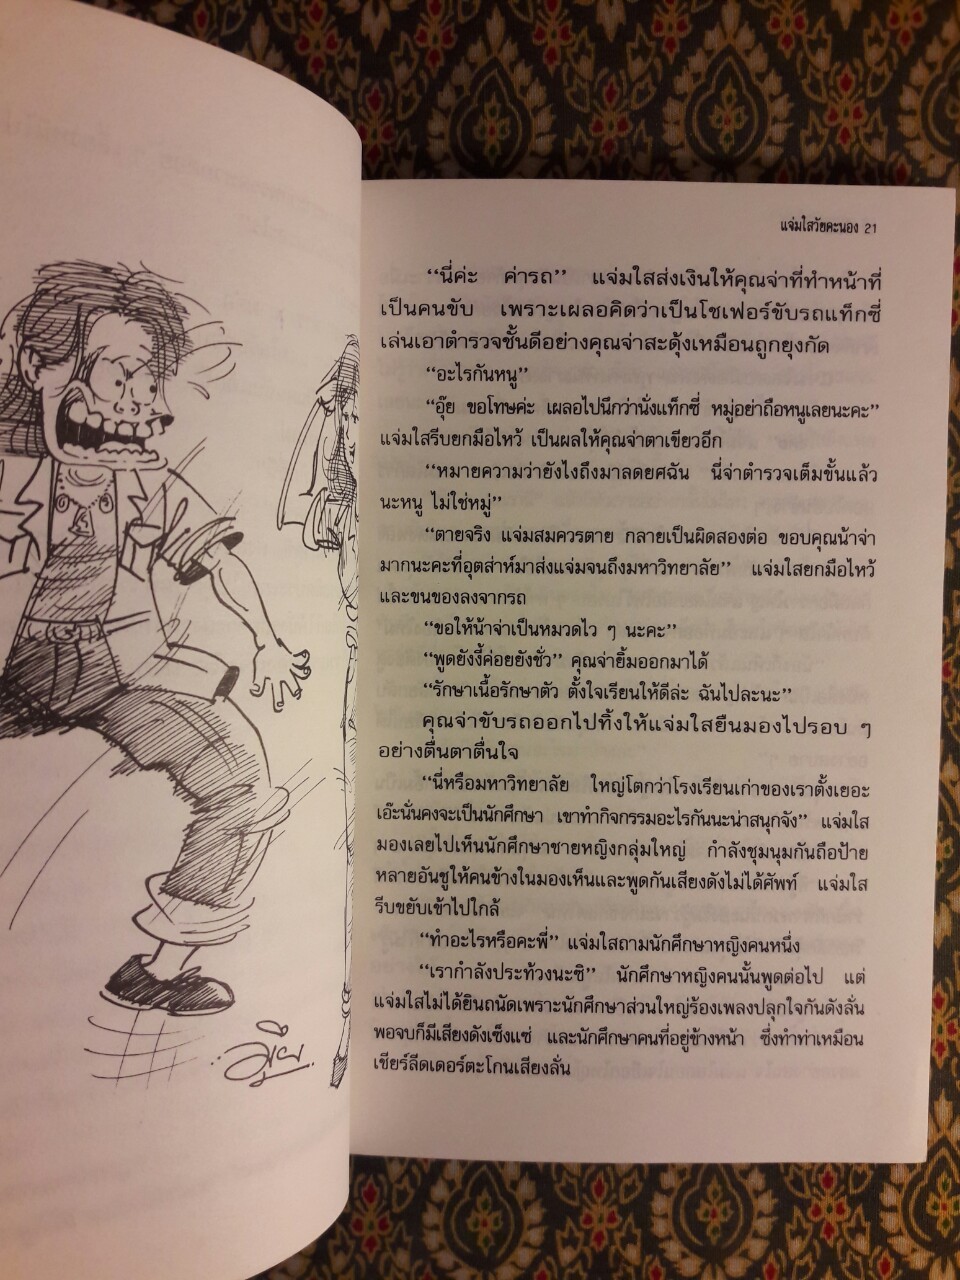 แจ่มใสวัยคะนอง 21
“นี่ค่ะ ค่ารถ” แจ่มใสส่งเงินให้คุณจ่าที่ทำหน้าที่
เป็นคนขับ เพราะเผลอคิดว่าเป็นโชเฟอร์ขับรถแท็กซี่
เล่นเอาตำรวจชั้นดีอย่างคุณจ่าสะดุ้งเหมือนถูกยุงกัด
“อะไรกันหนู”
“อุ๊ย ขอโทษค่ะ เผลอไปนึกว่านั่งแท็กซี่ หมู่อย่าถือหนูเลยนะคะ”
แจ่มใสรีบยกมือไหว้ เป็นผลให้คุณจ่าตาเขียวอีก
“หมายความว่ายังไงถึงมาลดยศฉัน นี่จ่าตำรวจเต็มขั้นแล้ว
นะหนู ไม่ใช่หมู่”
“ตายจริง แจ่มสมควรตาย กลายเป็นผิดสองต่อ ขอบคุณน้าจ่า
มากนะคะที่อุตส่าห์มาส่งแจ่มจนถึงมหาวิทยาลัย” แจ่มใสยกมือไหว้
และขนของลงจากรถ
“ขอให้น้าจ่าเป็นหมวดไว ๆ นะคะ”
“พูดยังงี้ค่อยยังชั่ว” คุณจ่ายิ้มออกมาได้
“รักษาเนื้อรักษาตัว ตั้งใจเรียนให้ดีล่ะ ฉันไปละนะ”
คุณจ่าขับรถออกไปทิ้งให้แจ่มใสยืนมองไปรอบ ๆ
อย่างตื่นตาตื่นใจ
“นี่หรือมหาวิทยาลัย ใหญ่โตกว่าโรงเรียนเก่าของเราตั้งเยอะ
เอ๊ะนั่นคงจะเป็นนักศึกษา เขาทำกิจกรรมอะไรกันนะน่าสนุกจัง” แจ่มใส
มองเลยไปเห็นนักศึกษาชายหญิงกลุ่มใหญ่ กำลังชุมนุมกันถือป้าย
หลายอันชูให้คนข้างในมองเห็นและพูดกันเสียงดังไม่ได้ศัพท์ แจ่มใส
รีบขยับเข้าไปใกล้
“ทำอะไรหรือคะพี่” แจ่มใสถามนักศึกษาหญิงคนหนึ่ง
“เรากำลังประท้วงนะซิ” นักศึกษาหญิงคนนั้นพูดต่อไป แต่
แจ่มใสไม่ได้ยินถนัดเพราะนักศึกษาส่วนใหญ่ร้องเพลงปลุกใจกันดังลั่น
พอจบก็มีเสียงดังเซ็งแซ่ และนักศึกษาคนที่อยู่ข้างหน้า ซึ่งทำท่าเหมือน
เชียร์ลีดเดอร์ตะโกนเสียงลั่น